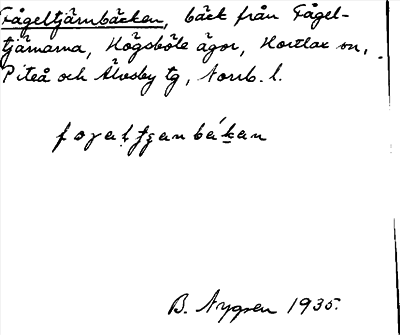 Fågeltjärnbäcken, bäck från Fågel-
tjärnarna, Högsböle ägor, Hortlax sn,
Piteå och Älvsby tg, Norrb. l.
B. Nygren 1935.